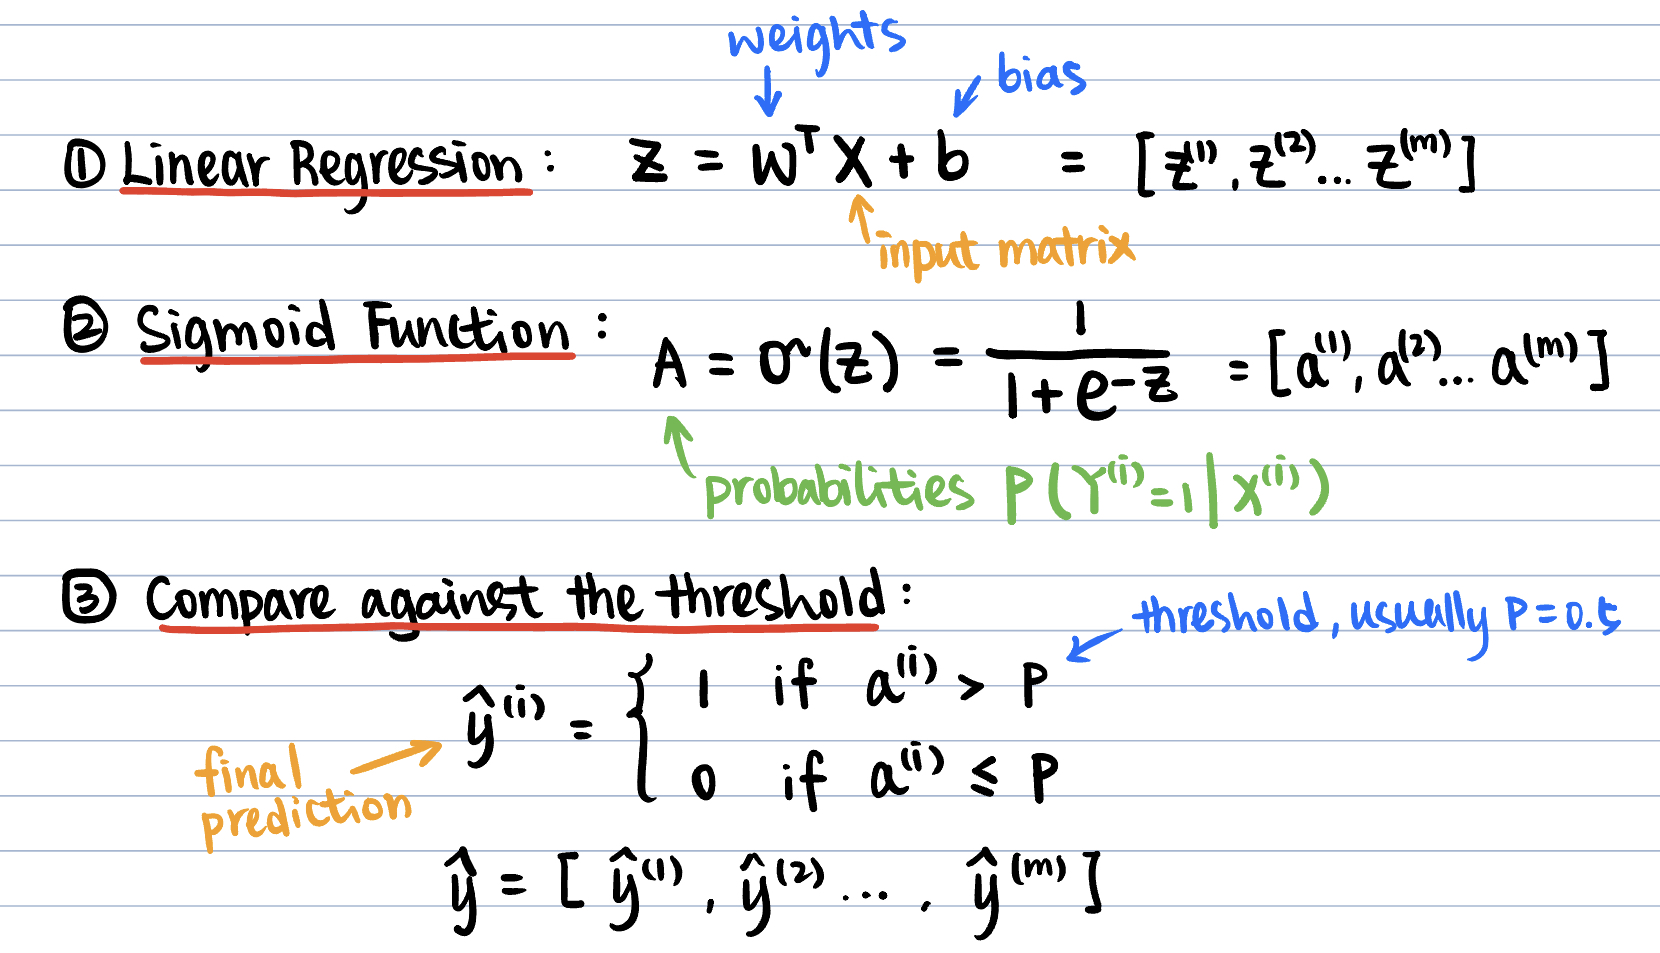 weights
bias
① Linear Regression : Z = wᵀ X + b = [z⁽¹⁾, z⁽²⁾... z⁽ᵐ⁾]
input matrix
② Sigmoid Function : A = σ(z) = 1 / (1 + e^-z) = [a⁽¹⁾, a⁽²⁾... a⁽ᵐ⁾]
probabilities P(Y⁽ⁱ⁾=1 | X⁽ⁱ⁾)
③ Compare against the threshold :
threshold, usually P = 0.5
ŷ⁽ⁱ⁾ = { 1 if a⁽ⁱ⁾ > P
0 if a⁽ⁱ⁾ ≤ P
final
prediction
ŷ = [ ŷ⁽¹⁾, ŷ⁽²⁾ ..., ŷ⁽ᵐ⁾ ]